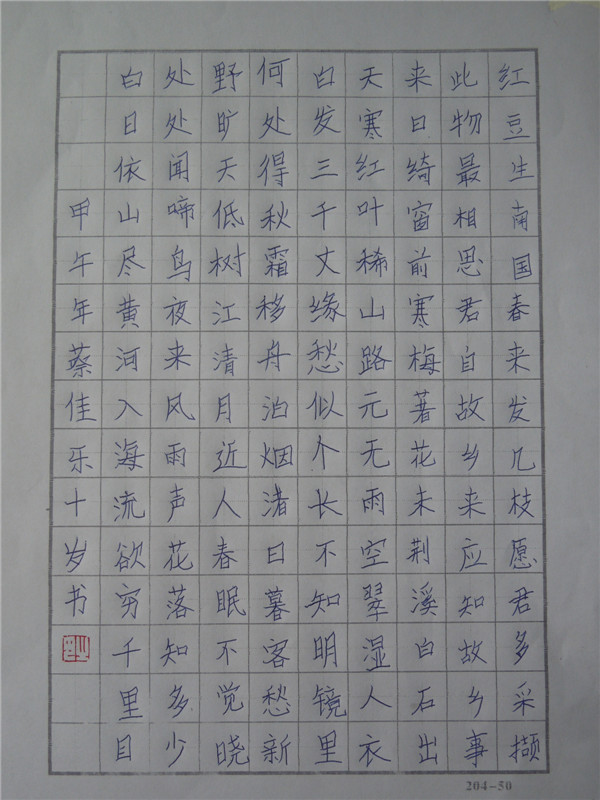 红豆生南国春来发几枝愿君多采撷
此物最相思君自故乡来应知故乡事
来日绮窗前寒梅著花未荆溪白石出
天寒红叶稀山路元无雨空翠湿人衣
白发三千丈缘愁似个长不知明镜里
何处得秋霜移舟泊烟渚日暮客愁新
野旷天低树江清月近人春眠不觉晓
处处闻啼鸟夜来风雨声花落知多少
白日依山尽黄河入海流欲穷千里目
甲午年蔡佳乐十岁书
204-50